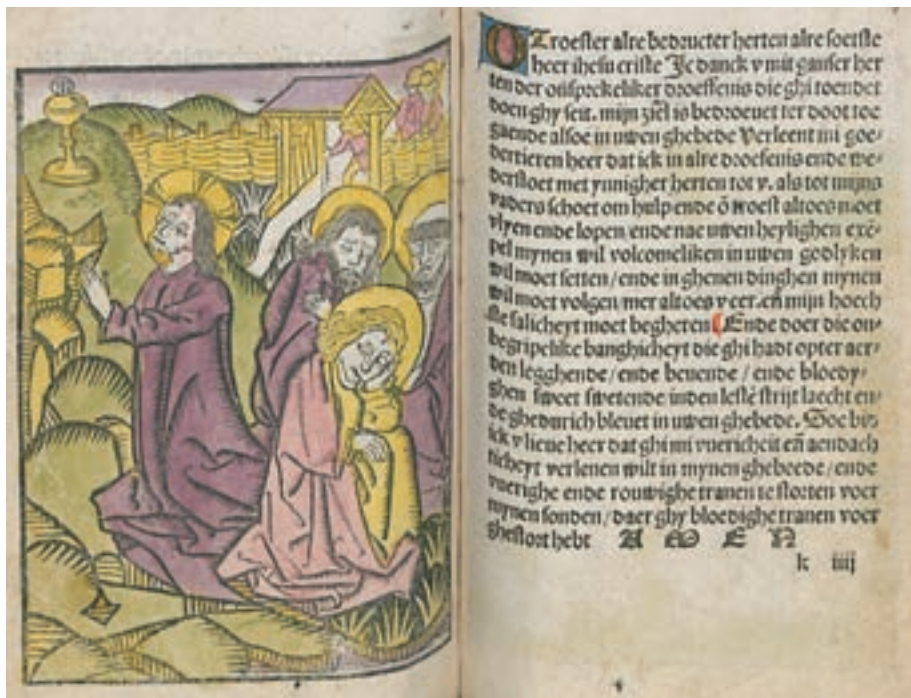 O Troester alre bedructer herten alre soetste
heer ihesu criste Ic danck v mit ganser her
ten der onsprekeliker droeffenis die ghi toendet
doen ghy seit. mijn ziel is bedroeuet ter doot toe
gaende alsoe in uwen ghebede Verleent mi goe⸗
dertieren heer dat ick in alre droefenis ende we⸗
derstoet met ynnigher herten tot v. als tot mijns
vaders schoet om hulp ende troest altoes moet
vlyen ende lopen ende nae uwen heylighen exē⸗
pel mynen wil volcomeliken in uwen godlyken
wil moet setten/ende in ghenen dinghen mynen
wil moet volgen mer altoes v eer.eñ mijn hoech
ste salicheyt moet begheren Ende doer die on⸗
begripelike banghicheyt die ghi hadt opter aer⸗
den legghende/ende beuende/ende bloedy⸗
ghen sweet swetende inden lestē strijt laecht en⸗
de ghedurich bleuet in uwen ghebede. Soe bid
ick v lieue heer dat ghi mi vuericheit eñ aendach
ticheyt verlenen wilt in mynen ghebeede/ende
vuerighe ende rouwighe tranen te storten voer
mynen sonden/daer ghy bloedighe tranen voer
ghestort hebt A M E N
k iiij